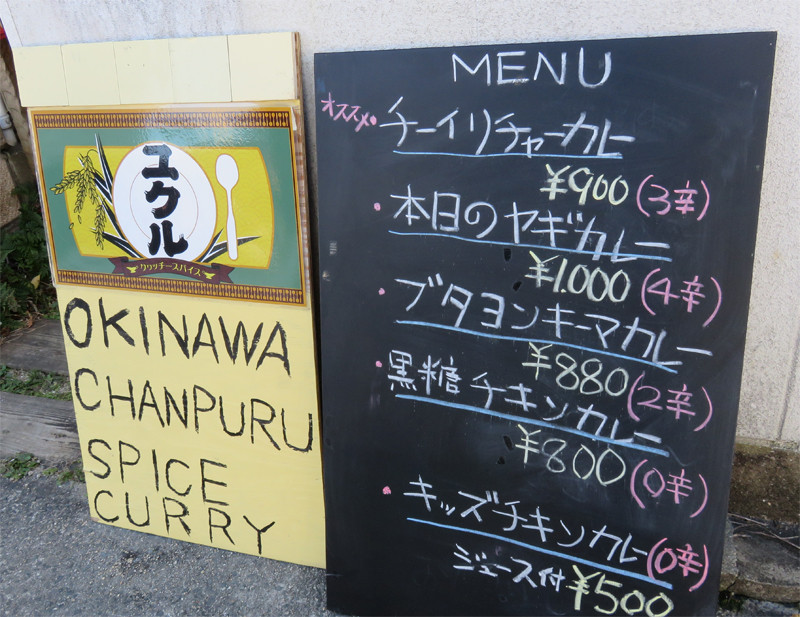 ユクル
クリッチースパイス
OKINAWA
CHANPURU
SPICE
CURRY
MENU
オススメ・チーイリチャーカレー
¥900 (3辛)
・本日のヤギカレー
¥1.000 (4辛)
・ブタヨンキーマカレー
¥880 (2辛)
・黒糖チキンカレー
¥800 (0辛)
・キッズチキンカレー (0辛)
ジュース付 ¥500